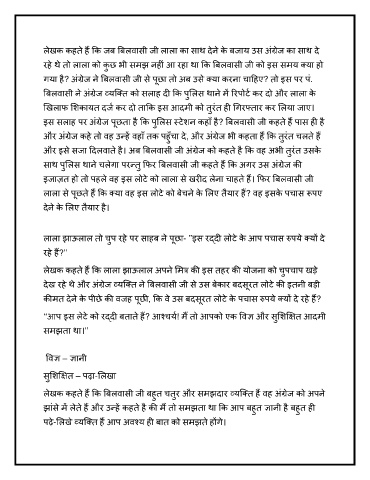 लेखक कहते हैं कि जब बिलवासी जी लाला का साथ देने के बजाय उस अंग्रेज का साथ दे
रहे थे तो लाला को कुछ भी समझ नहीं आ रहा था कि बिलवासी जी को इस समय क्या हो
गया है? अंग्रेज ने बिलवासी जी से पूछा तो अब उसे क्या करना चाहिए? तो इस पर पं.
बिलवासी ने अंग्रेज व्यक्ति को सलाह दी कि पुलिस थाने में रिपोर्ट कर दो और लाला के
खिलाफ शिकायत दर्ज कर दो ताकि इस आदमी को तुरंत ही गिरफ्तार कर लिया जाए।
इस सलाह पर अंग्रेज पूछता है कि पुलिस स्टेशन कहाँ है? बिलवासी जी कहते हैं पास ही है
और अंग्रेज कहे तो वह उन्हें वहाँ तक पहुँचा दे, और अंग्रेज भी कहता हैं कि तुरंत चलते हैं
और इसे सजा दिलवाते है। अब बिलवासी जी अंग्रेज को कहते है कि वह अभी तुरंत उसके
साथ पुलिस थाने चलेगा परन्तु फिर बिलवासी जी कहते हैं कि अगर उस अंग्रेज की
इजाज़त हो तो पहले वह इस लोटे को लाला से खरीद लेना चाहते हैं। फिर बिलवासी जी
लाला से पूछते हैं कि क्या वह इस लोटे को बेचने के लिए तैयार हैं? वह इसके पचास रूपए
देने के लिए तैयार है।
लाला झाऊलाल तो चुप रहे पर साहब ने पूछा- "इस रद्दी लोटे के आप पचास रुपये क्यों दे
रहे हैं?"
लेखक कहते हैं कि लाला झाऊलाल अपने मित्र की इस तहर की योजना को चुपचाप खड़े
देख रहे थे और अंग्रेज व्यक्ति ने बिलवासी जी से उस बेकार बदसूरत लोटे की इतनी बड़ी
कीमत देने के पीछे की वजह पूछी, कि वे उस बदसूरत लोटे के पचास रुपये क्यों दे रहे हैं?
"आप इस लेटे को रद्दी बताते हैं? आश्चर्य! मैं तो आपको एक विज्ञ और सुशिक्षित आदमी
समझता था।"
विज्ञ – ज्ञानी
सुशिक्षित – पढ़ा-लिखा
लेखक कहते हैं कि बिलवासी जी बहुत चतुर और समझदार व्यक्ति हैं वह अंग्रेज को अपने
झांसे में लेते हैं और उन्हें कहते है की मैं तो समझता था कि आप बहुत ज्ञानी है बहुत ही
पढे-लिखे व्यक्ति हैं आप अवश्य ही बात को समझते होंगे।